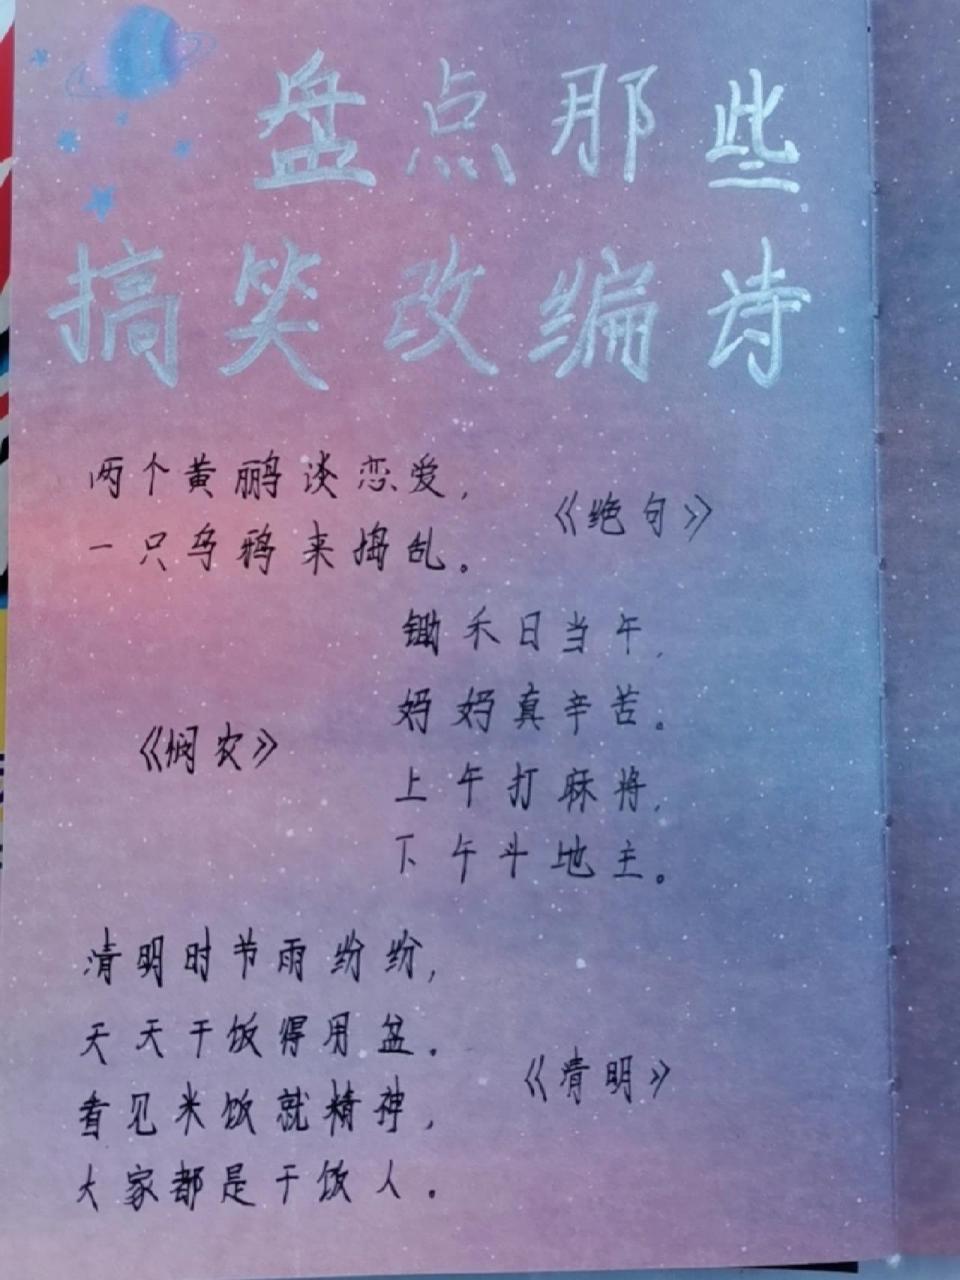 盘点那些
搞笑改编诗
两个黄鹂谈恋爱,
《绝句》
一只乌鸦来捣乱。
锄禾日当午,
妈妈真辛苦。
《悯农》
上午打麻将,
下午斗地主。
清明时节雨纷纷,
天天干饭得用盆。
《清明》
看见米饭就精神,
大家都是干饭人。